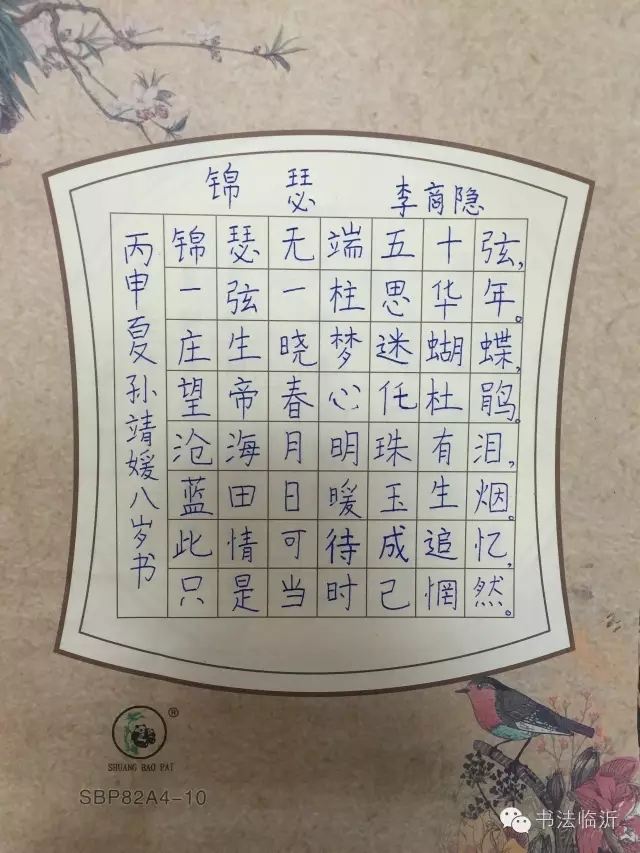 锦瑟 李商隐
锦瑟无端五十弦,
一弦一柱思华年。
庄生晓梦迷蝴蝶,
望帝春心仛杜鹃。
沧海月明珠有泪,
蓝田日暖玉生烟。
此情可待成追忆,
只是当时已惘然。
丙申夏孙靖媛八岁书
®
SHUANG BAO PAI
SBP82A4-10
书法临沂